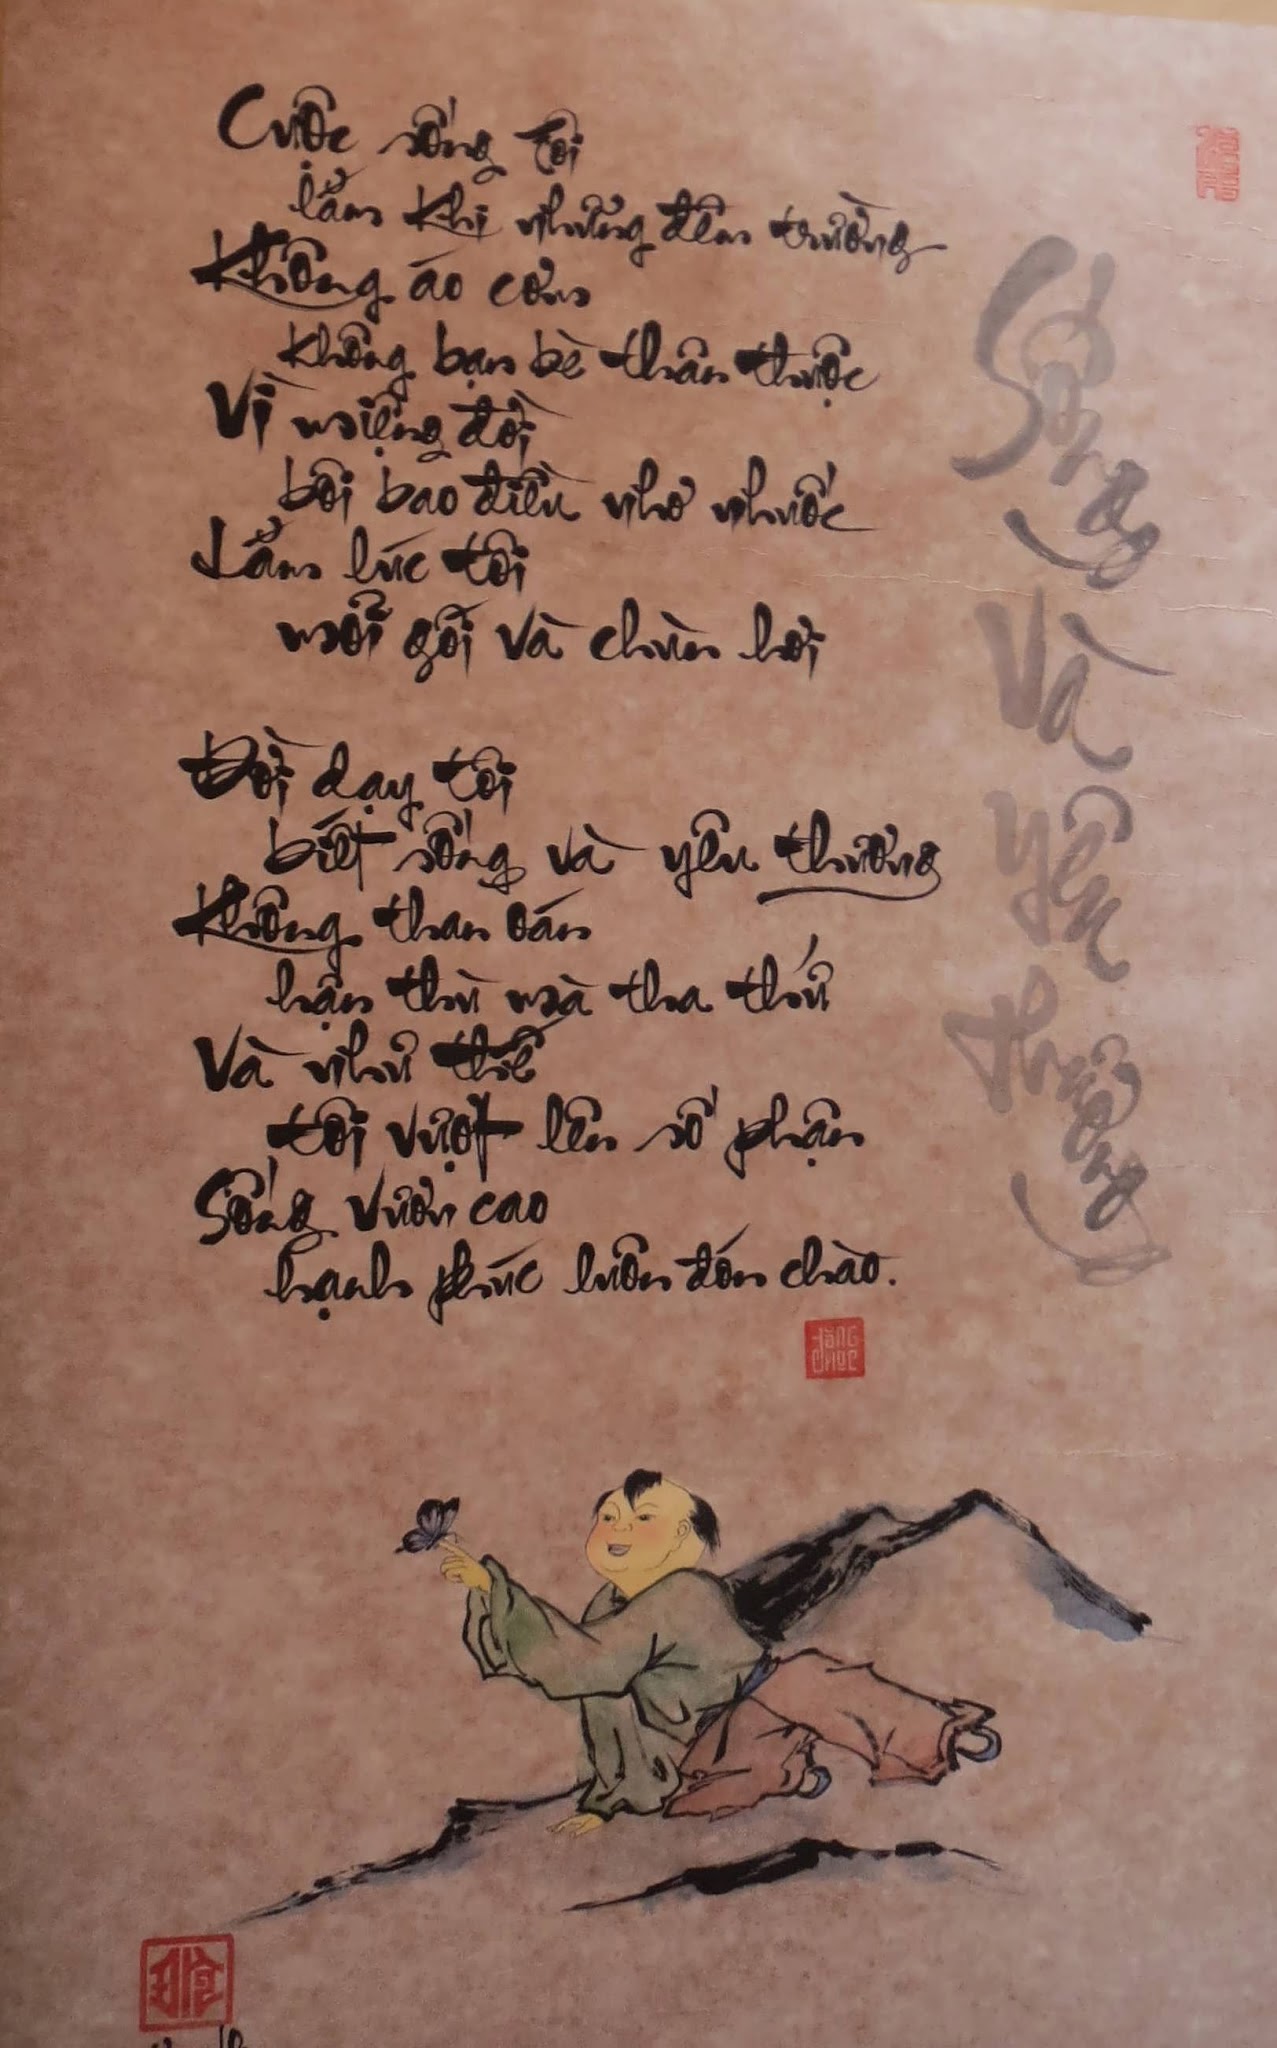 Cuộc sống tôi
lắm khi những đêm trường
Không áo cơm
không bạn bè thân thuộc
Vì miệng đời
bôi bao điều nhơ nhuốc
Lắm lúc tôi
mỏi gối và chùn hơi
Đời dạy tôi
biết sống và yêu thương
Không than oán
hận thù mà tha thứ
Và như thế
tôi vượt lên số phận
Sống vươn cao
hạnh phúc luôn đón chào.
Sống
và
yêu
thương